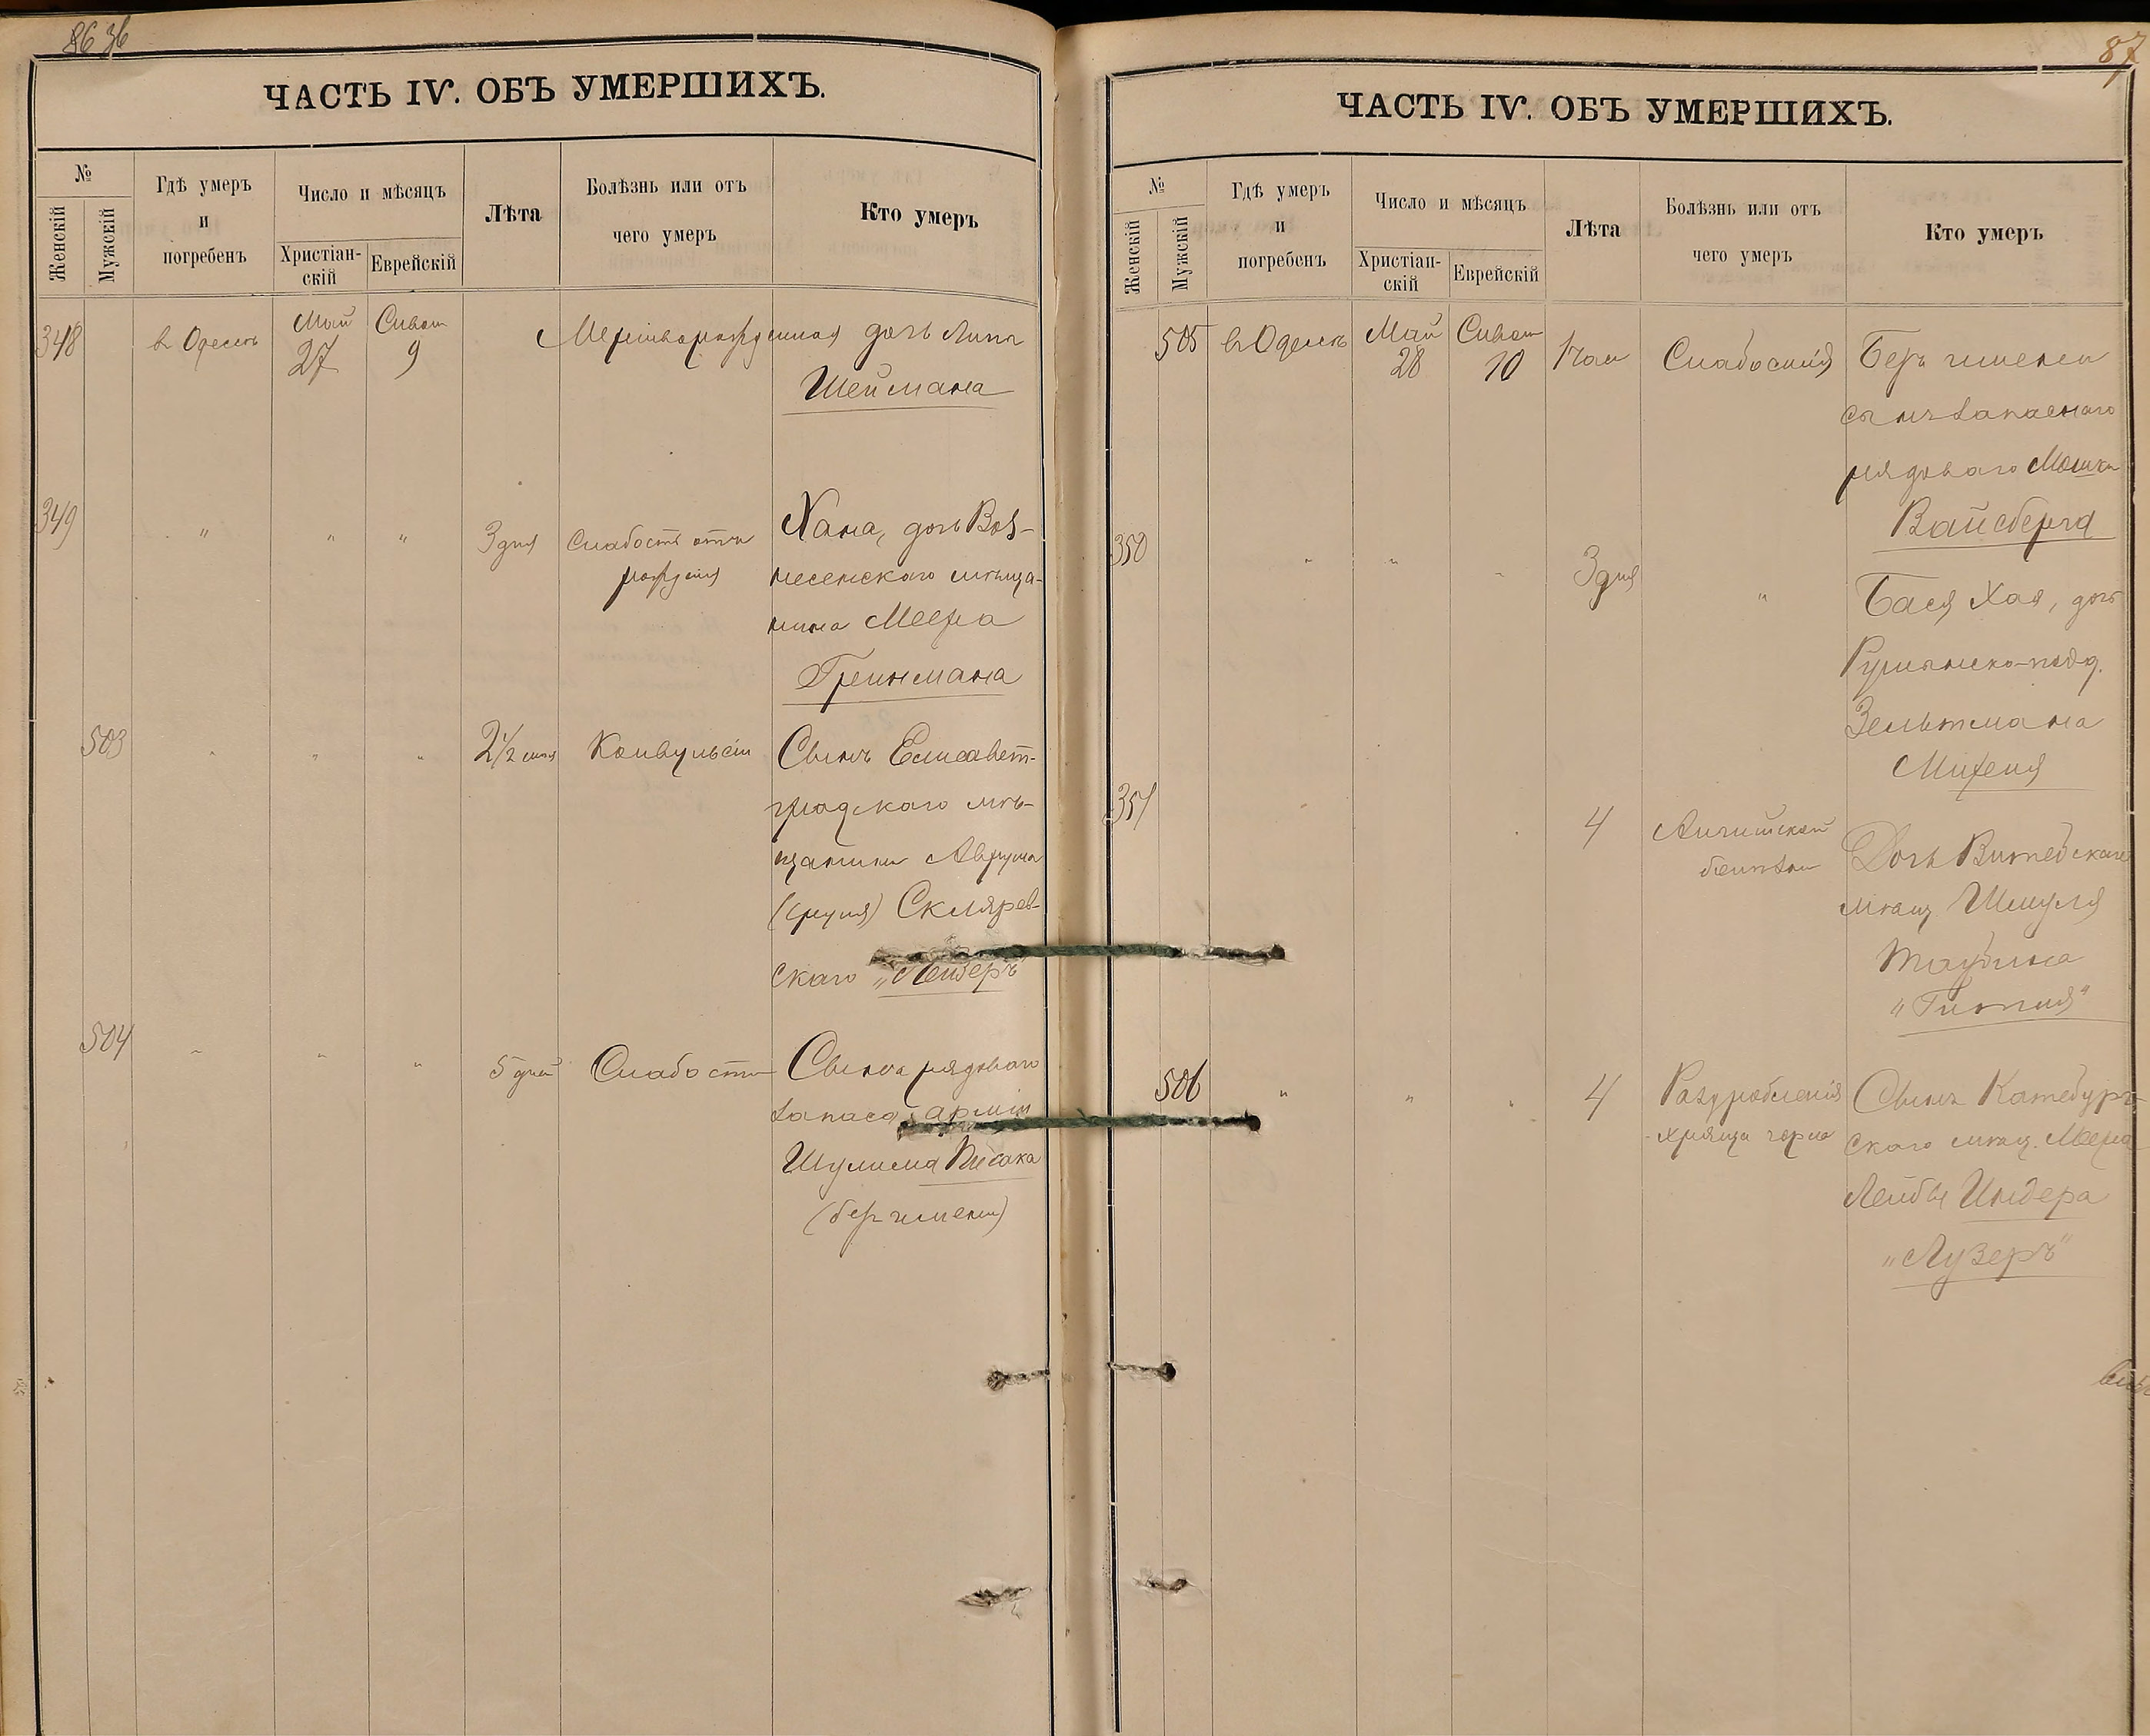 86 36
ЧАСТЬ IV. ОБЪ УМЕРШИХЪ.
№
Женскій
Мужскій
Гдѣ умеръ
и
погребенъ
Число и мѣсяцъ
Христіан-
скій
Еврейскій
Лѣта
Болѣзнь или отъ
чего умеръ
Кто умеръ
348 в Одессѣ Май 27 Сиван 9 Мертворожденная дочь
Шеймана
349 " " " 3 дня Слабость отъ
рожденія
Хана, дочь Воз-
несенского мѣща-
нина Меера
Грейнмана
503 " " " 2 1/2 Конвульсіи Сынъ Елисавет-
градского мѣ-
щанина Аврума
Скляров-
скаго „Лейберъ"
504 " " " 5 дней Слабости Сынъ рядового
запаса арміи
Шулима
(без имени)
87
ЧАСТЬ IV. ОБЪ УМЕРШИХЪ.
№
Женскій
Мужскій
Гдѣ умеръ
и
погребенъ
Число и мѣсяцъ
Христіан-
скій
Еврейскій
Лѣта
Болѣзнь или отъ
чего умеръ
Кто умеръ
505 в Одессѣ Май 28 Сиван 10 1 час Слабостія Безъ имени
сынъ запаснаго
рядоваго Мошки
Вайсберга
350 " " " 3 дня " Бася Хая, дочь
Румынско-подд.
Зельтмана
351 " " 4 Англійской
болѣзни
Дочь Витебскаго
мѣщ Шмуля
Таубина
"Гитля"
506 " " " 4 Раздробленія
хряща горла
Сынъ Катебург-
скаго мѣщ. Меера
Лейбы Индера
"Лузеръ"